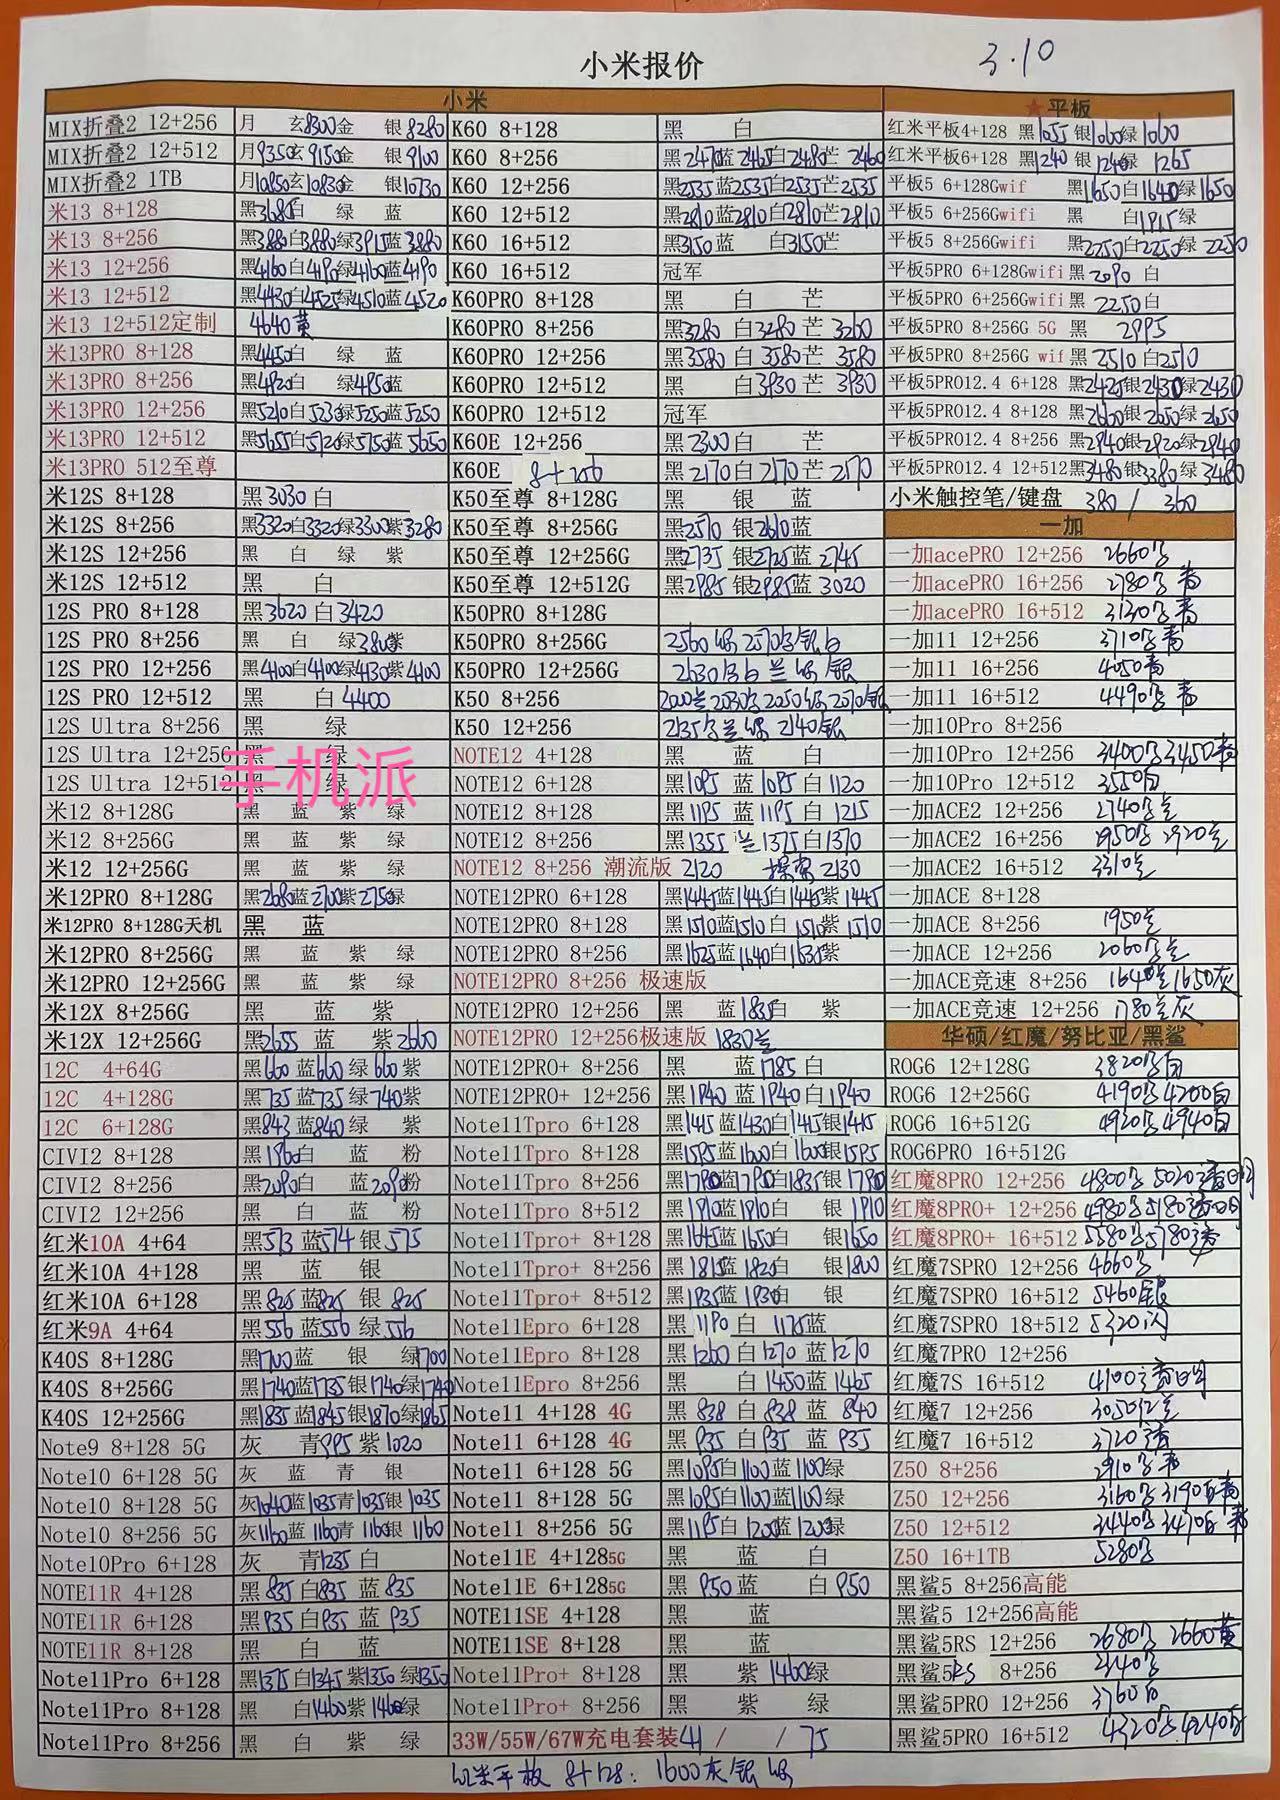 小米报价 3.10
小米
MIX折叠2 12+256 月 玄8300金 银8280
MIX折叠2 12+512 月9350玄9150金 银9100
MIX折叠2 1TB 月10850玄10830金 银10730
米13 8+128 黑3685白 绿 蓝
米13 8+256 黑3880白3880绿3915蓝3880
米13 12+256 黑4160白4190绿4160蓝4190
米13 12+512 黑4430白4525绿4510蓝4520
米13 12+512定制 4640黄
米13PRO 8+128 黑4450白 绿 蓝
米13PRO 8+256 黑4920白 绿4950蓝
米13PRO 12+256 黑5210白5230绿5250蓝5250
米13PRO 12+512 黑5655白5920绿5750蓝5650
米13PRO 512至尊
米12S 8+128 黑3030白
米12S 8+256 黑3320白3320绿3300紫3280
米12S 12+256 黑 白 绿 紫
米12S 12+512 黑 白
12S PRO 8+128 黑3620白3420
12S PRO 8+256 黑 白 绿380紫
12S PRO 12+256 黑4100白4100绿4130紫4100
12S PRO 12+512 黑 白4400
12S Ultra 8+256 黑 绿
12S Ultra 12+256 黑 绿
12S Ultra 12+512 黑 绿
手机派
米12 8+128G 黑 蓝 紫 绿
米12 8+256G 黑 蓝 紫 绿
米12 12+256G 黑 蓝 紫 绿
米12PRO 8+128G 黑2680蓝2700紫2750绿
米12PRO 8+128G天机 黑 蓝
米12PRO 8+256G 黑 蓝 紫 绿
米12PRO 12+256G 黑 蓝 紫 绿
米12X 8+256G 黑 蓝 紫
米12X 12+256G 黑2655 蓝 紫2660
12C 4+64G 黑660蓝660绿660紫
12C 4+128G 黑735蓝735绿740紫
12C 6+128G 黑843蓝840绿 紫
CIVI2 8+128 黑1960白 蓝 粉
CIVI2 8+256 黑2090白 蓝2090粉
CIVI2 12+256 黑 白 蓝 粉
红米10A 4+64 黑573蓝574银575
红米10A 4+128 黑 蓝 银
红米10A 6+128 黑825蓝825银825
红米9A 4+64 黑556蓝556绿556
K40S 8+128G 黑1700蓝 银 绿1700
K40S 8+256G 黑1740蓝1735银1740绿1740
K40S 12+256G 黑1835蓝1845银1870绿1865
Note9 8+128 5G 灰 青995紫1020
Note10 6+128 5G 灰 蓝 青 银
Note10 8+128 5G 灰1040蓝1035青1035银1035
Note10 8+256 5G 灰1160蓝1160青1160银1160
Note10Pro 6+128 灰 青1235白
NOTE11R 4+128 黑835白835蓝835
NOTE11R 6+128 黑935白935蓝935
NOTE11R 8+128 黑 白 蓝
Note11Pro 6+128 黑1375白1345紫1350绿1350
Note11Pro 8+128 黑 白1460紫1460绿
Note11Pro 8+256 黑 白 紫 绿
K60 8+128 黑 白
K60 8+256 黑2470蓝2465白2480芒2460
K60 12+256 黑2535蓝2535白2535芒2535
K60 12+512 黑2810蓝2810白2810芒2810
K60 16+512 黑3150蓝 白3150芒
K60 16+512 冠军
K60PRO 8+128 黑 白 芒
K60PRO 8+256 黑3280白3280芒3260
K60PRO 12+256 黑3580白3580芒3580
K60PRO 12+512 黑 白3930芒3930
K60PRO 12+512 冠军
K60E 12+256 黑2300白 芒
K60E 8+256 黑2170白2170芒2170
K50至尊 8+128G 黑 银 蓝
K50至尊 8+256G 黑2570银2610蓝
K50至尊 12+256G 黑2735银2725蓝2745
K50至尊 12+512G 黑2985银2985蓝3020
K50PRO 8+128G
K50PRO 8+256G 2560绿2570银白
K50PRO 12+256G 2630白兰绿银
K50 8+256 2000兰2030 2050绿2070银
K50 12+256 2135兰绿2140银
NOTE12 4+128 黑 蓝 白
NOTE12 6+128 黑1095蓝1095白1120
NOTE12 8+128 黑1195蓝1195白1215
NOTE12 8+256 黑1355兰1375白1370
NOTE12 8+256 潮流版 2120 探索2130
NOTE12PRO 6+128 黑1445蓝1445白1445紫1445
NOTE12PRO 8+128 黑1510蓝1510白1510紫1510
NOTE12PRO 8+256 黑1625蓝1640白1635紫
NOTE12PRO 8+256 极速版
NOTE12PRO 12+256 黑 蓝1835白 紫
NOTE12PRO 12+256极速版 1830兰
NOTE12PRO+ 8+256 黑 蓝1785白
NOTE12PRO+ 12+256 黑1940蓝1940白1940
Note11Tpro 6+128 黑1415蓝1430白1415银1415
Note11Tpro 8+128 黑1595蓝1600白1600银1595
Note11Tpro 8+256 黑1790蓝1790白1835银1790
Note11Tpro 8+512 黑1910蓝1910白 银1910
Note11Tpro+ 8+128 黑1645蓝1650白 银1650
Note11Tpro+ 8+256 黑1815蓝1820白 银1800
Note11Tpro+ 8+512 黑1935蓝1930白 银
Note11Epro 6+128 黑1190白1175蓝
Note11Epro 8+128 黑1260白1270蓝1270
Note11Epro 8+256 黑 白1450蓝1465
Note11 4+128 4G 黑838白838蓝840
Note11 6+128 4G 黑935白935蓝935
Note11 6+128 5G 黑1095白1100蓝1100绿
Note11 8+128 5G 黑1095白1100蓝1100绿
Note11 8+256 5G 黑1195白1200蓝1200绿
Note11E 4+128 5G 黑 蓝 白
Note11E 6+128 5G 黑950蓝 白950
NOTE11SE 4+128 黑 蓝
NOTE11SE 8+128 黑 蓝
Note11Pro+ 8+128 黑 紫1460绿
Note11Pro+ 8+256 黑 紫 绿
33W/55W/67W充电套装41 / / 75
★平板
红米平板4+128 黑1055银1060绿1060
红米平板6+128 黑1240银1240绿1265
平板5 6+128Gwif 黑1650白1640绿1650
平板5 6+256Gwifi 黑 白1915绿
平板5 8+256Gwifi 黑2250白2250绿2250
平板5PRO 6+128Gwifi黑2090白
平板5PRO 6+256Gwifi黑2250白
平板5PRO 8+256G 5G 黑 2995
平板5PRO 8+256G wif黑2510白2510
平板5PRO12.4 6+128 黑2425银2430绿2430
平板5PRO12.4 8+128 黑2660银2650绿2650
平板5PRO12.4 8+256 黑2940银2920绿2940
平板5PRO12.4 12+512黑3480银3380绿3480
小米触控笔/键盘 380 / 360
一加
一加acePRO 12+256 2660
一加acePRO 16+256 2780青
一加acePRO 16+512 3130青
一加11 12+256 3710青
一加11 16+256 4050青
一加11 16+512 4490青
一加10Pro 8+256
一加10Pro 12+256 3400 3450青
一加10Pro 12+512 3550白
一加ACE2 12+256 2740
一加ACE2 16+256 2950 2920兰
一加ACE2 16+512 3310兰
一加ACE 8+128
一加ACE 8+256 1950兰
一加ACE 12+256 2060兰
一加ACE竞速 8+256 1640兰1650灰
一加ACE竞速 12+256 1780兰灰
华硕/红魔/努比亚/黑鲨
ROG6 12+128G 3820白
ROG6 12+256G 4190 4200白
ROG6 16+512G 4920 4940白
ROG6PRO 16+512G
红魔8PRO 12+256 4800 5020
红魔8PRO+ 12+256 4980 5180
红魔8PRO+ 16+512 5580 5780
红魔7SPRO 12+256 4660
红魔7SPRO 16+512 5460银
红魔7SPRO 18+512 5320
红魔7PRO 12+256
红魔7S 16+512 4100
红魔7 12+256 3050红兰
红魔7 16+512 3720
Z50 8+256 2910
Z50 12+256 3160 3190白青
Z50 12+512 3440 3470白
Z50 16+1TB 5280
黑鲨5 8+256高能
黑鲨5 12+256高能
黑鲨5RS 12+256 2680 2660黄
黑鲨5RS 8+256 2340
黑鲨5PRO 12+256 3760白
黑鲨5PRO 16+512 4320 4240白
红米平板 8+128: 1600灰银绿